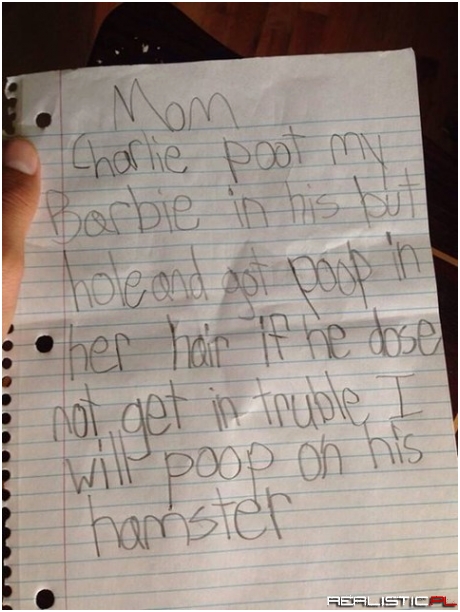 Mom
Charlie poot my
Barbie in his but
hole and got poop in
her hair if he dose
not get in truble I
will poop on his
hamster
REALISTICPL